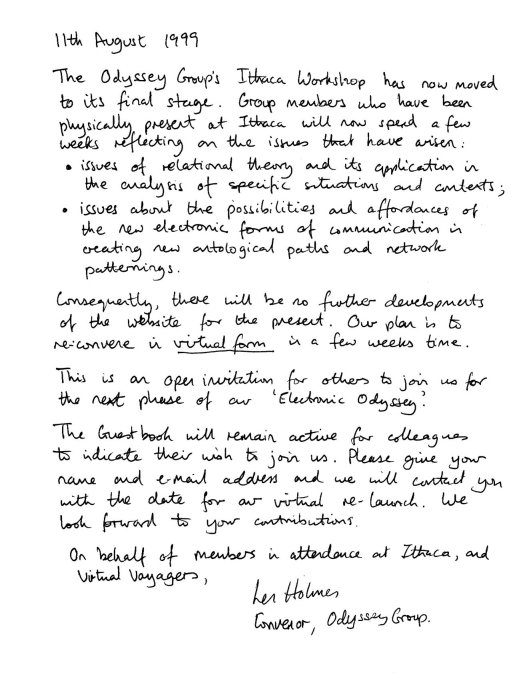 11th August 1999
The Odyssey Group's Ithaca Workshop has now moved
to its final stage. Group members who have been
physically present at Ithaca will now spend a few
weeks reflecting on the issues that have arisen:
• issues of relational theory and its application in
the analysis of specific situations and contexts;
• issues about the possibilities and affordances of
the new electronic forms of communication in
creating new ontological paths and network
patternings.
Consequently, there will be no further developments
of the website for the present. Our plan is to
re-convene in virtual form in a few weeks time.
This is an open invitation for others to join us for
the next phase of our 'Electronic Odyssey'.
The Guestbook will remain active for colleagues
to indicate their wish to join us. Please give your
name and e-mail address and we will contact you
with the date for our virtual re-launch. We
look forward to your contributions.
On behalf of members in attendance at Ithaca, and
Virtual Voyagers,
Len Holmes
Convenor, Odyssey Group.